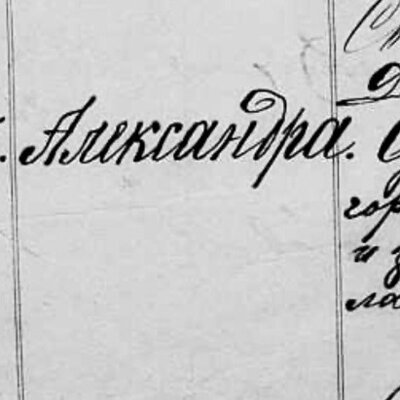 Александра.
гор
и з
ла